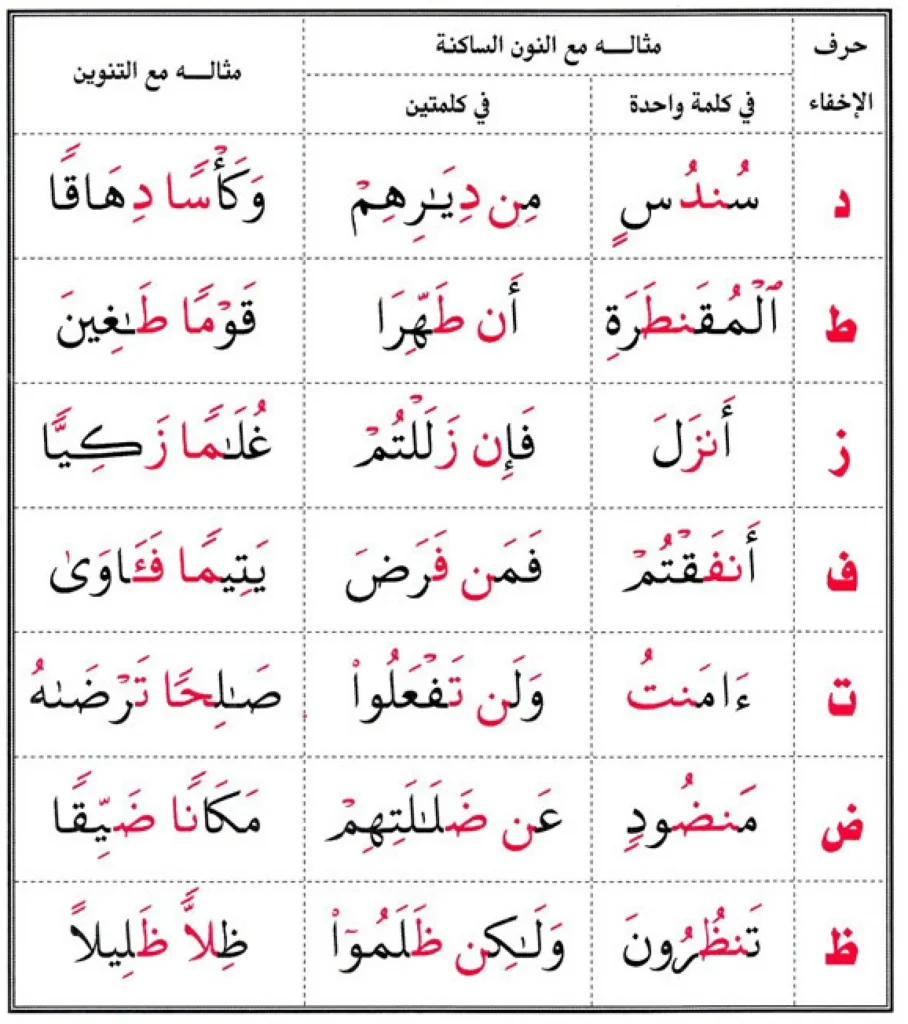 حرف الإخفاء | مثالـــه مع النون الساكنة | مثالـــه مع التنوين
في كلمة واحدة | في كلمتين
د | سُندُسٍ | مِن دِيَـٰرِهِمْ | وَكَأْسًا دِهَاقًا
ط | ٱلْمُقَنطَرَةِ | أَن طَهِّرَا | قَوْمًا طَـٰغِينَ
ز | أَنزَلَ | فَإِن زَلَلْتُمْ | غُلَـٰمًا زَكِيًّا
ف | أَنفَقْتُمْ | فَمَن فَرَضَ | يَتِيمًا فَـَٔاوَىٰ
ت | ءَامَنتُ | وَلَن تَفْعَلُوا۟ | صَـٰلِحًا تَرْضَىٰهُ
ض | مَنضُودٍ | عَن ضَلَـٰلَتِهِمْ | مَكَانًا ضَيِّقًا
ظ | تَنظُرُونَ | وَلَـٰكِن ظَلَمُوٓا۟ | ظِلاًّ ظَلِيلاً